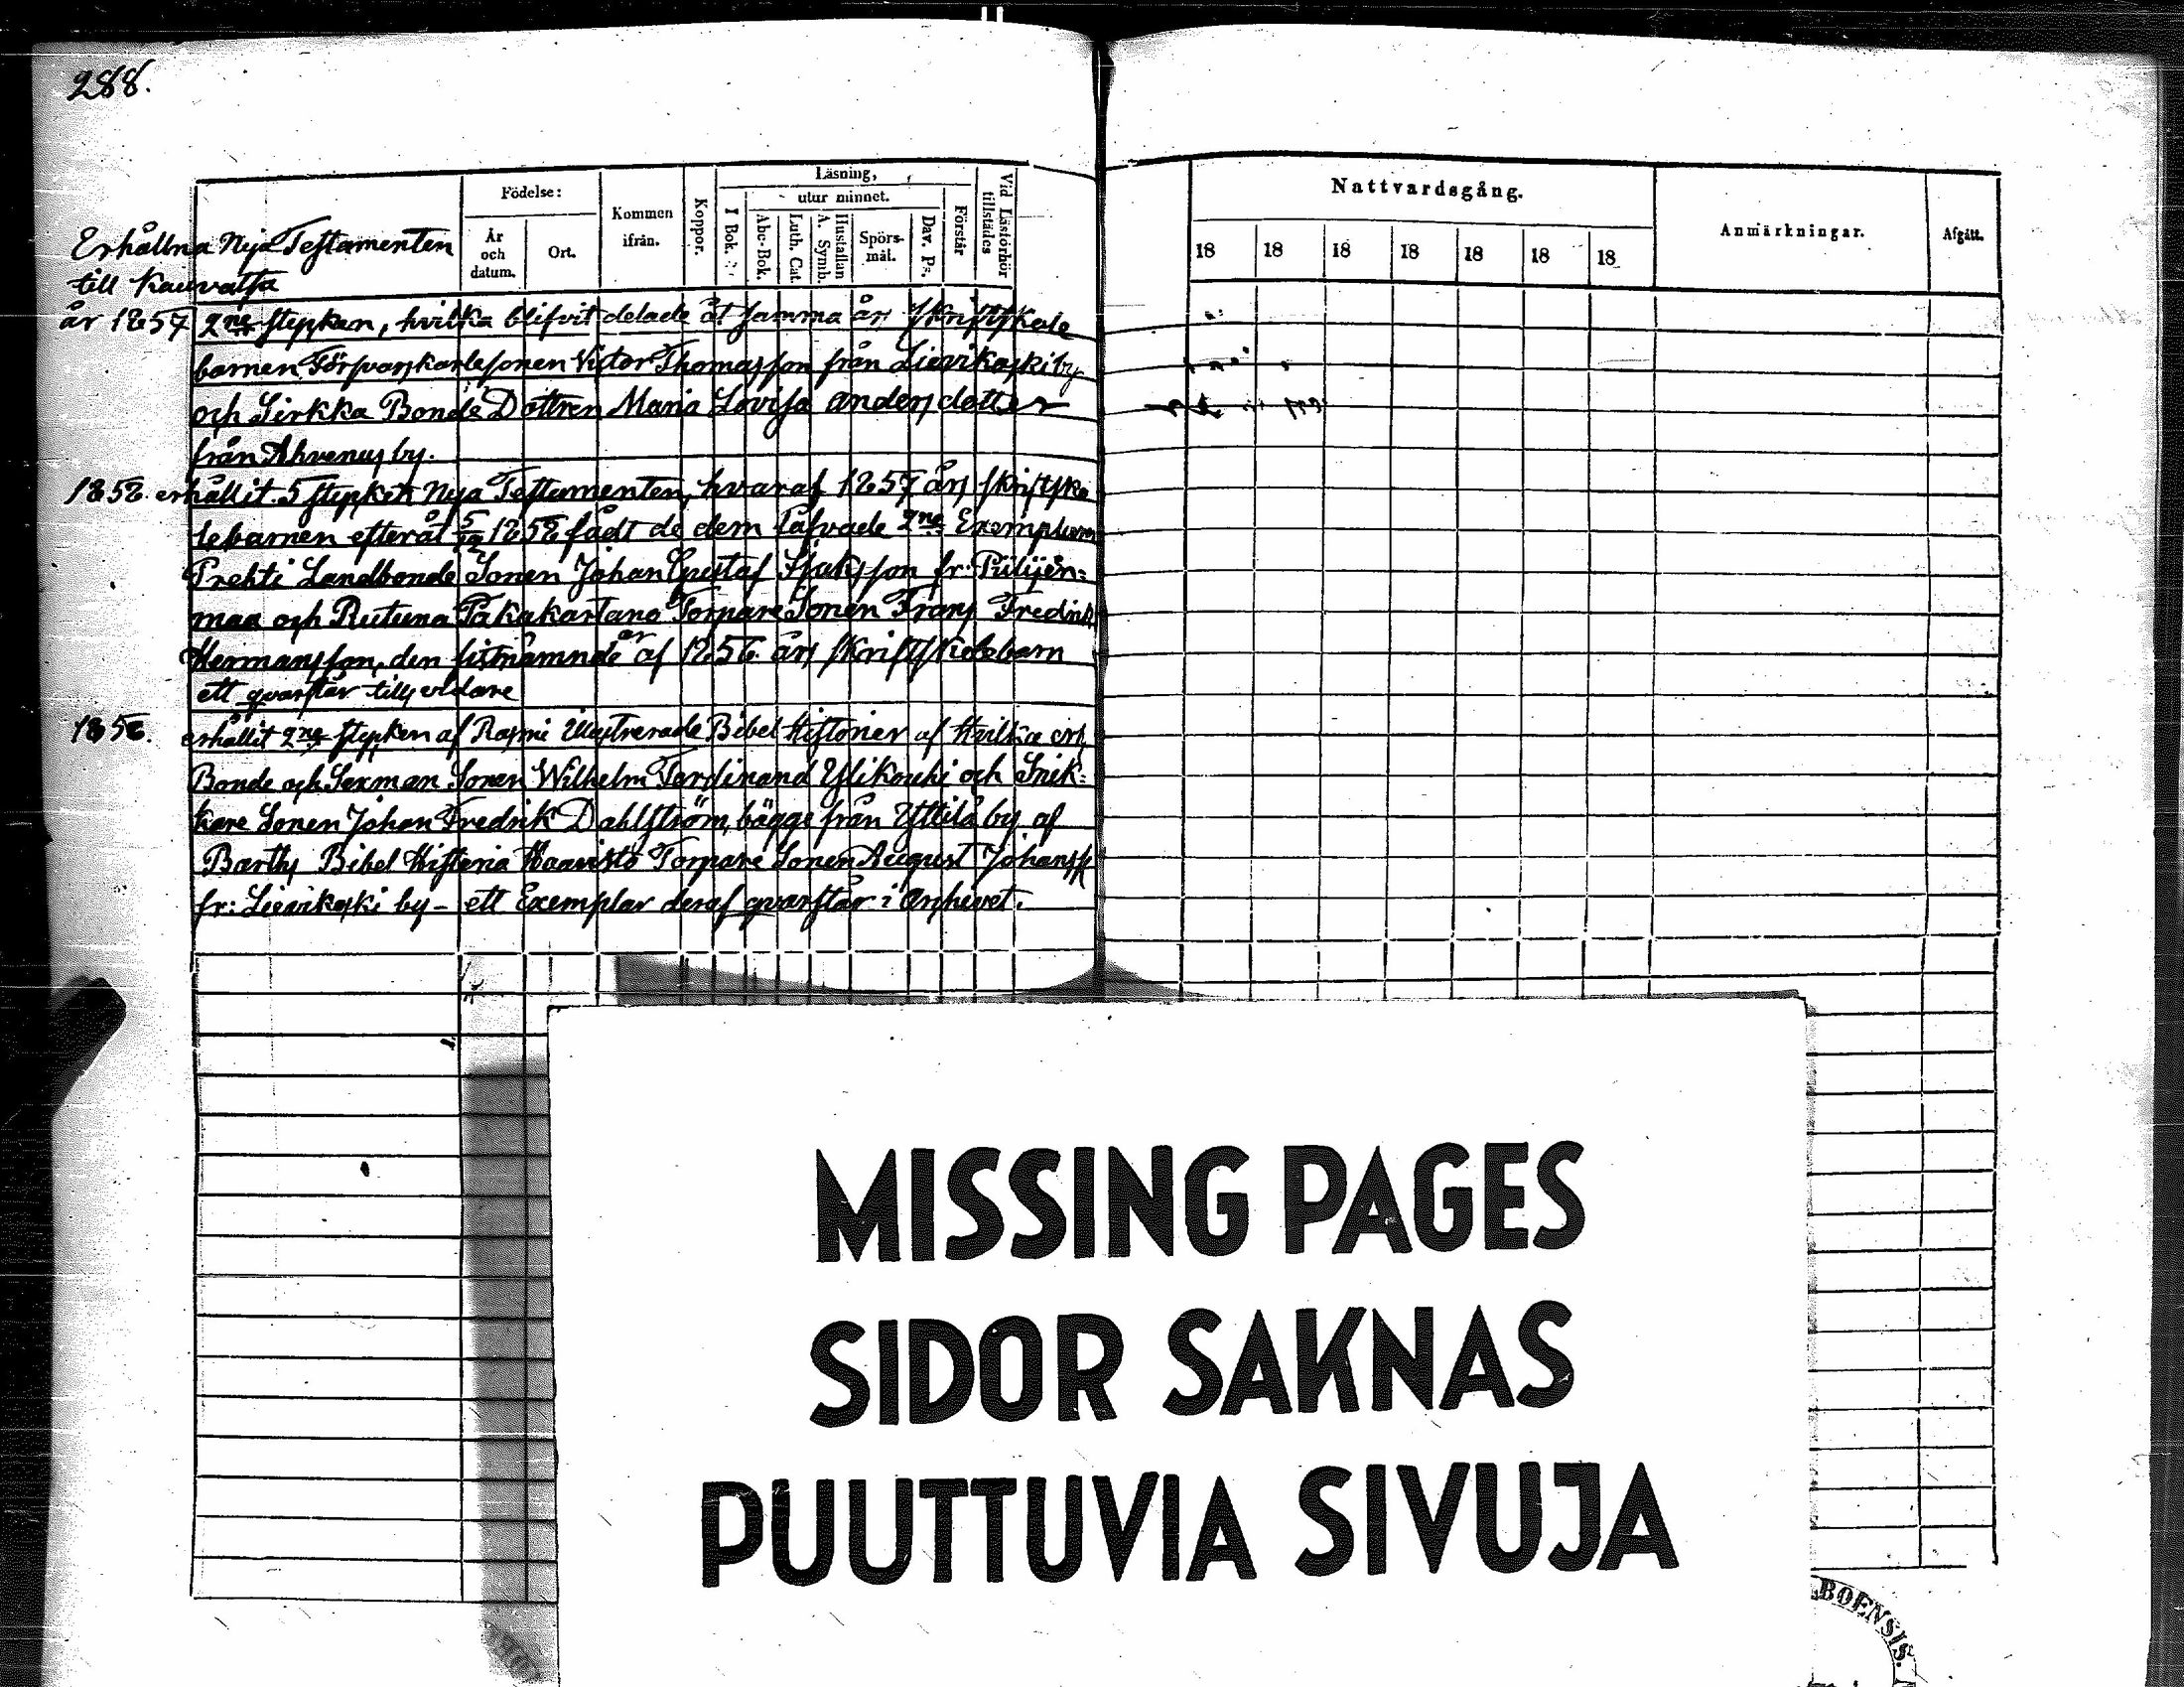 288.
Födelse:
År och datum.
Ort.
Kommen ifrån.
Koppor.
Läsning,
utur minnet.
I Bok.
Abc-Bok.
Luth. Cat.
A. Symb.
Hustaflan
Spörsmål.
Dav. Ps.
Förstår
Vid Läsförhör tillstädes
Nattvardsgång.
18 18 18 18 18 18 18
Anmärkningar.
Afgått.
Erhållna Nya Testamenten
till Kauvatsa
år 1857 2ne stycken, hvilka blifvit delade åt samma års skriftskole
barnen Försvarskarlssonen Victor Thomasson från Lievikoski by
och Sirkka Bonde Dottren Maria Lovisa Andersdotter
från Ahvenus by.
1858 erhållit 5 stycken Nya Testamenten, hvaraf 1857 års skriftsko
lebarnen efteråt 1858 fådt de dem låfvade 2ne Exemplaren
Prehti Landbonde Sonen Johan Gustaf Isaksson fr:
maa och Takakartano Torpare Sonen Frans Fredrik
Hermansson, den sistnämnde af års skriftskolebarn
ett qvarstår
erhållit 2ne stycken af Illustrerade Bibel Historier af hvilka
Bonde och Sexman Sonen Wilhelm Ferdinand Ylikouhi och Snik=
kare Sonen Johan Fredrik Dahlström, bägge från Yttilä by af
Barths Bibel Historia Haavisto Torpare Sonen August Johanss
fr: Lievikoski by - ett Exemplar deraf qvarstår i Archivet.
MISSING PAGES
SIDOR SAKNAS
PUUTTUVIA SIVUJA
BOENSIS.